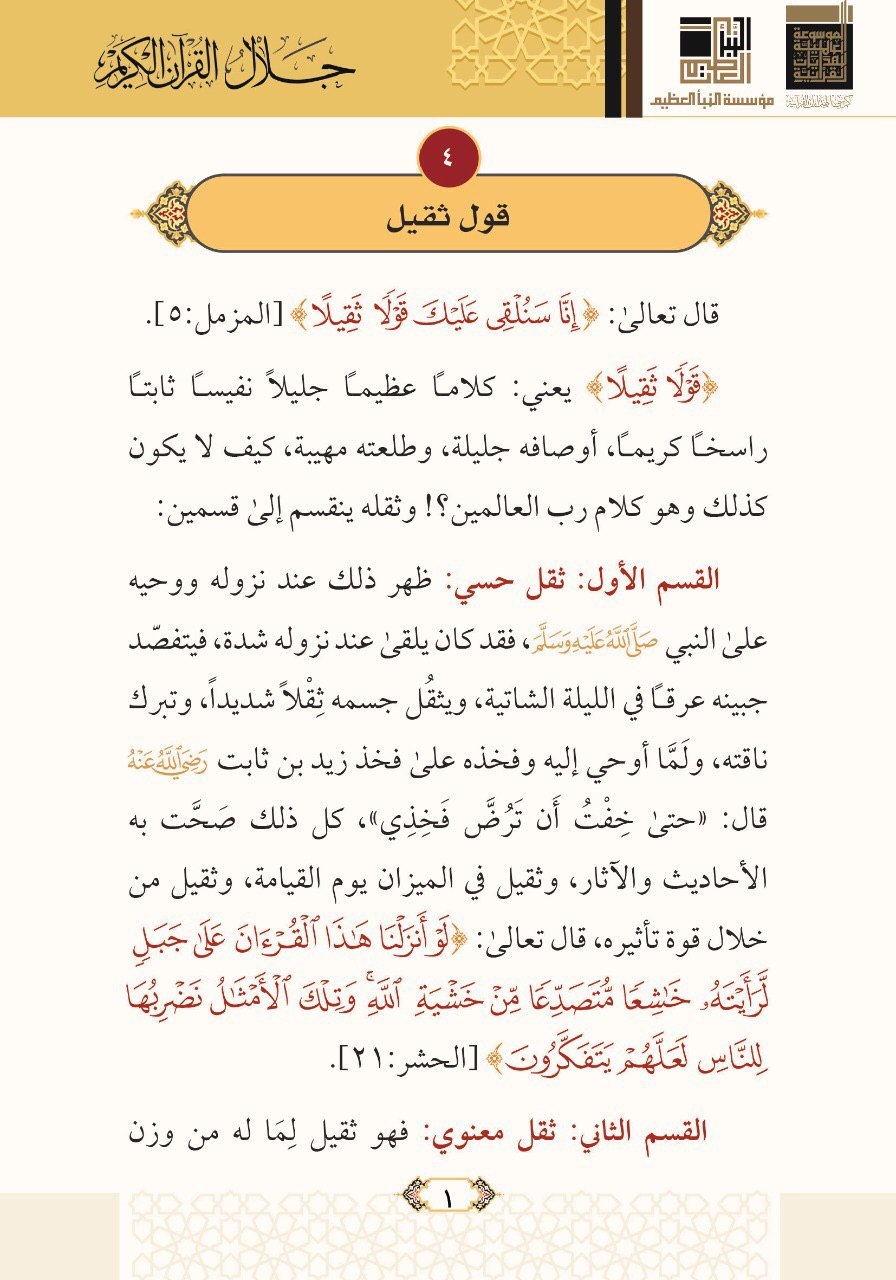 جلال القرآن الكريم
النبأ العظيم
مؤسسة النبأ العظيم
٤
قول ثقيل
قال تعالىٰ: ﴿إِنَّا سَنُلْقِى عَلَيْكَ قَوْلًا ثَقِيلًا﴾ [المزمل:٥].
﴿قَوْلًا ثَقِيلًا﴾ يعني: كلامـًا عظيمـًا جليلاً نفيسـًا ثابتـًا
راسخـًا كريمـًا، أوصافه جليلة، وطلعته مهيبة، كيف لا يكون
كذلك وهو كلام رب العالمين؟! وثقله ينقسم إلىٰ قسمين:
القسم الأول: ثقل حسي: ظهر ذلك عند نزوله ووحيه
علىٰ النبي صَلَّى ٱللَّهُ عَلَيْهِ وَسَلَّمَ، فقد كان يلقىٰ عند نزوله شدة، فيتفصّد
جبينه عرقـًا في الليلة الشاتية، ويثقُل جسمه ثِقْلاً شديداً، وتبرك
ناقته، ولَمَّا أوحي إليه وفخذه علىٰ فخذ زيد بن ثابت رَضِيَ ٱللَّهُ عَنْهُ
قال: «حتىٰ خِفْتُ أَن تَرُضَّ فَخِذِي»، كل ذلك صَحَّت به
الأحاديث والآثار، وثقيل في الميزان يوم القيامة، وثقيل من
خلال قوة تأثيره، قال تعالىٰ: ﴿لَوْ أَنزَلْنَا هَـٰذَا ٱلْقُرْءَانَ عَلَىٰ جَبَلٍ
لَّرَأَيْتَهُۥ خَـٰشِعًا مُّتَصَدِّعًا مِّنْ خَشْيَةِ ٱللَّهِ ۚ وَتِلْكَ ٱلْأَمْثَـٰلُ نَضْرِبُهَا
لِلنَّاسِ لَعَلَّهُمْ يَتَفَكَّرُونَ﴾ [الحشر:٢١].
القسم الثاني: ثقل معنوي: فهو ثقيل لِمَا له من وزن
١